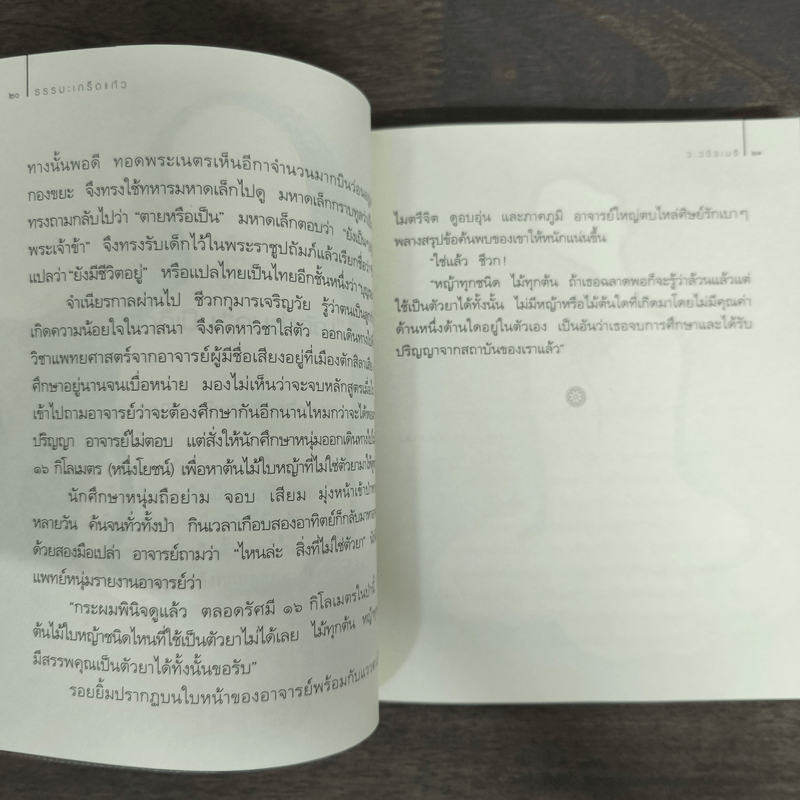 ๒๐ ธรรมะเกร็ดแก้ว
ทางนั้นพอดี ทอดพระเนตรเห็นอีกาจำนวนมากบินว่อน
กองขยะ จึงทรงใช้ทหารมหาดเล็กไปดู มหาดเล็กกราบทูลว่า
ทรงถามกลับไปว่า “ตายหรือเป็น” มหาดเล็กตอบว่า “ยังเป็น
พระเจ้าข้า” จึงทรงรับเด็กไว้ในพระราชูปถัมภ์แล้วเรียกชื่อว่า
แปลว่า “ยังมีชีวิตอยู่” หรือแปลไทยเป็นไทยอีกชั้นหนึ่งว่า
จำเนียรกาลผ่านไป ชีวกกุมารเจริญวัย รู้ว่าตนเป็น
เกิดความน้อยใจในวาสนา จึงคิดหาวิชาใส่ตัว ออกเดินทาง
วิชาแพทยศาสตร์จากอาจารย์ผู้มีชื่อเสียงอยู่ที่เมืองตักสิลา
ศึกษาอยู่นานจนเบื่อหน่าย มองไม่เห็นว่าจะจบหลักสูตร
เข้าไปถามอาจารย์ว่าจะต้องศึกษากันอีกนานไหมกว่าจะได้
ปริญญา อาจารย์ไม่ตอบ แต่สั่งให้นักศึกษาหนุ่มออกเดินทาง
๑๖ กิโลเมตร (หนึ่งโยชน์) เพื่อหาต้นไม้ใบหญ้าที่ไม่ใช่ตัวยามา
นักศึกษาหนุ่มถือย่าม จอบ เสียม มุ่งหน้าเข้าป่า
หลายวัน ค้นจนทั่วทั้งป่า กินเวลาเกือบสองอาทิตย์ก็กลับมา
ด้วยสองมือเปล่า อาจารย์ถามว่า “ไหนล่ะ สิ่งที่ไม่ใช่ตัวยา”
แพทย์หนุ่มรายงานอาจารย์ว่า
“กระผมพินิจดูแล้ว ตลอดรัศมี ๑๖ กิโลเมตรในป่านี้
ต้นไม้ใบหญ้าชนิดไหนที่ใช้เป็นตัวยาไม่ได้เลย ไม้ทุกต้น
มีสรรพคุณเป็นตัวยาได้ทั้งนั้นขอรับ”
รอยยิ้มปรากฏบนใบหน้าของอาจารย์พร้อมกับ
ว.วชิรเมธี ๒๑
ไมตรีจิต ดูอบอุ่น และภาคภูมิ อาจารย์ใหญ่ตบไหล่ศิษย์รักเบาๆ
พลางสรุปข้อค้นพบของเขาให้หนักแน่นขึ้น
“ใช่แล้ว ชีวก!
“หญ้าทุกชนิด ไม้ทุกต้น ถ้าเธอฉลาดพอก็จะรู้ว่าล้วนแล้วแต่
ใช้เป็นตัวยาได้ทั้งนั้น ไม่มีหญ้าหรือไม้ต้นใดที่เกิดมาโดยไม่มีคุณค่า
ด้านหนึ่งด้านใดอยู่ในตัวเอง เป็นอันว่าเธอจบการศึกษาและได้รับ
ปริญญาจากสถาบันของเราแล้ว”